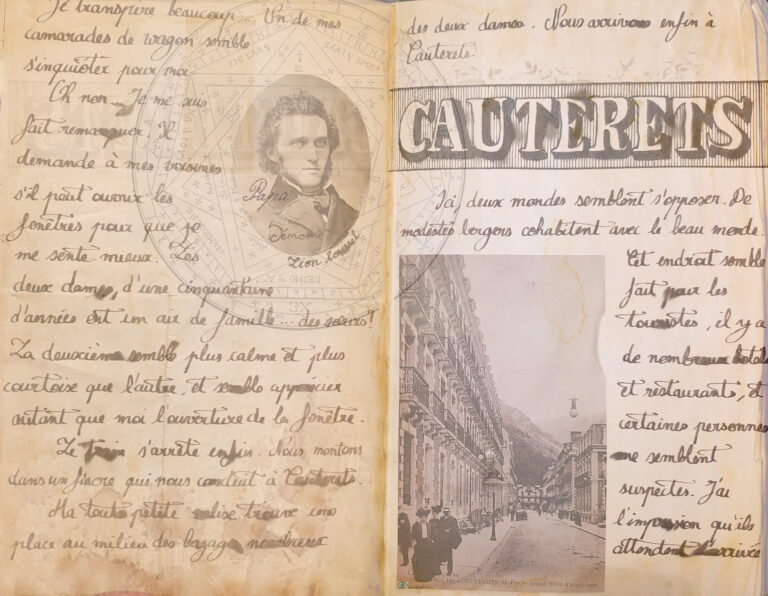 Je transpire beaucoup... Un de mes
camarades de wagon semble
s'inquiéter pour moi.
Oh non. Je me suis
fait remarquer. Il
demande à mes voisines
s'il peut ouvrir les
fenêtres pour que je
me sente mieux. Les
deux dames, d'une cinquantaine
d'années ont un air de famille... des sœurs?
La deuxième semble plus calme et plus
courtoise que l'autre, et semble apprécier
autant que moi l'ouverture de la fenêtre.
Le train s'arrête enfin. Nous montons
dans un fiacre qui nous conduit à Cauterets.
Ma toute petite valise trouve une
place au milieu des bagages nombreux
Papa
Démons
des deux dames. Nous arrivons enfin à
Cauterets.
CAUTERETS
Ici, deux mondes semblent s'opposer. De
modestes bergers cohabitent avec le beau monde.
Cet endroit semble
fait pour les
touristes, il y a
de nombreux hotels
et restaurants, et
certaines personnes
me semblent
suspectes. J'ai
l'impression qu'ils
attendent l'arrivée
CAUTERETS (H.-Pyr.) - Grand Hôtel d'Angleterre